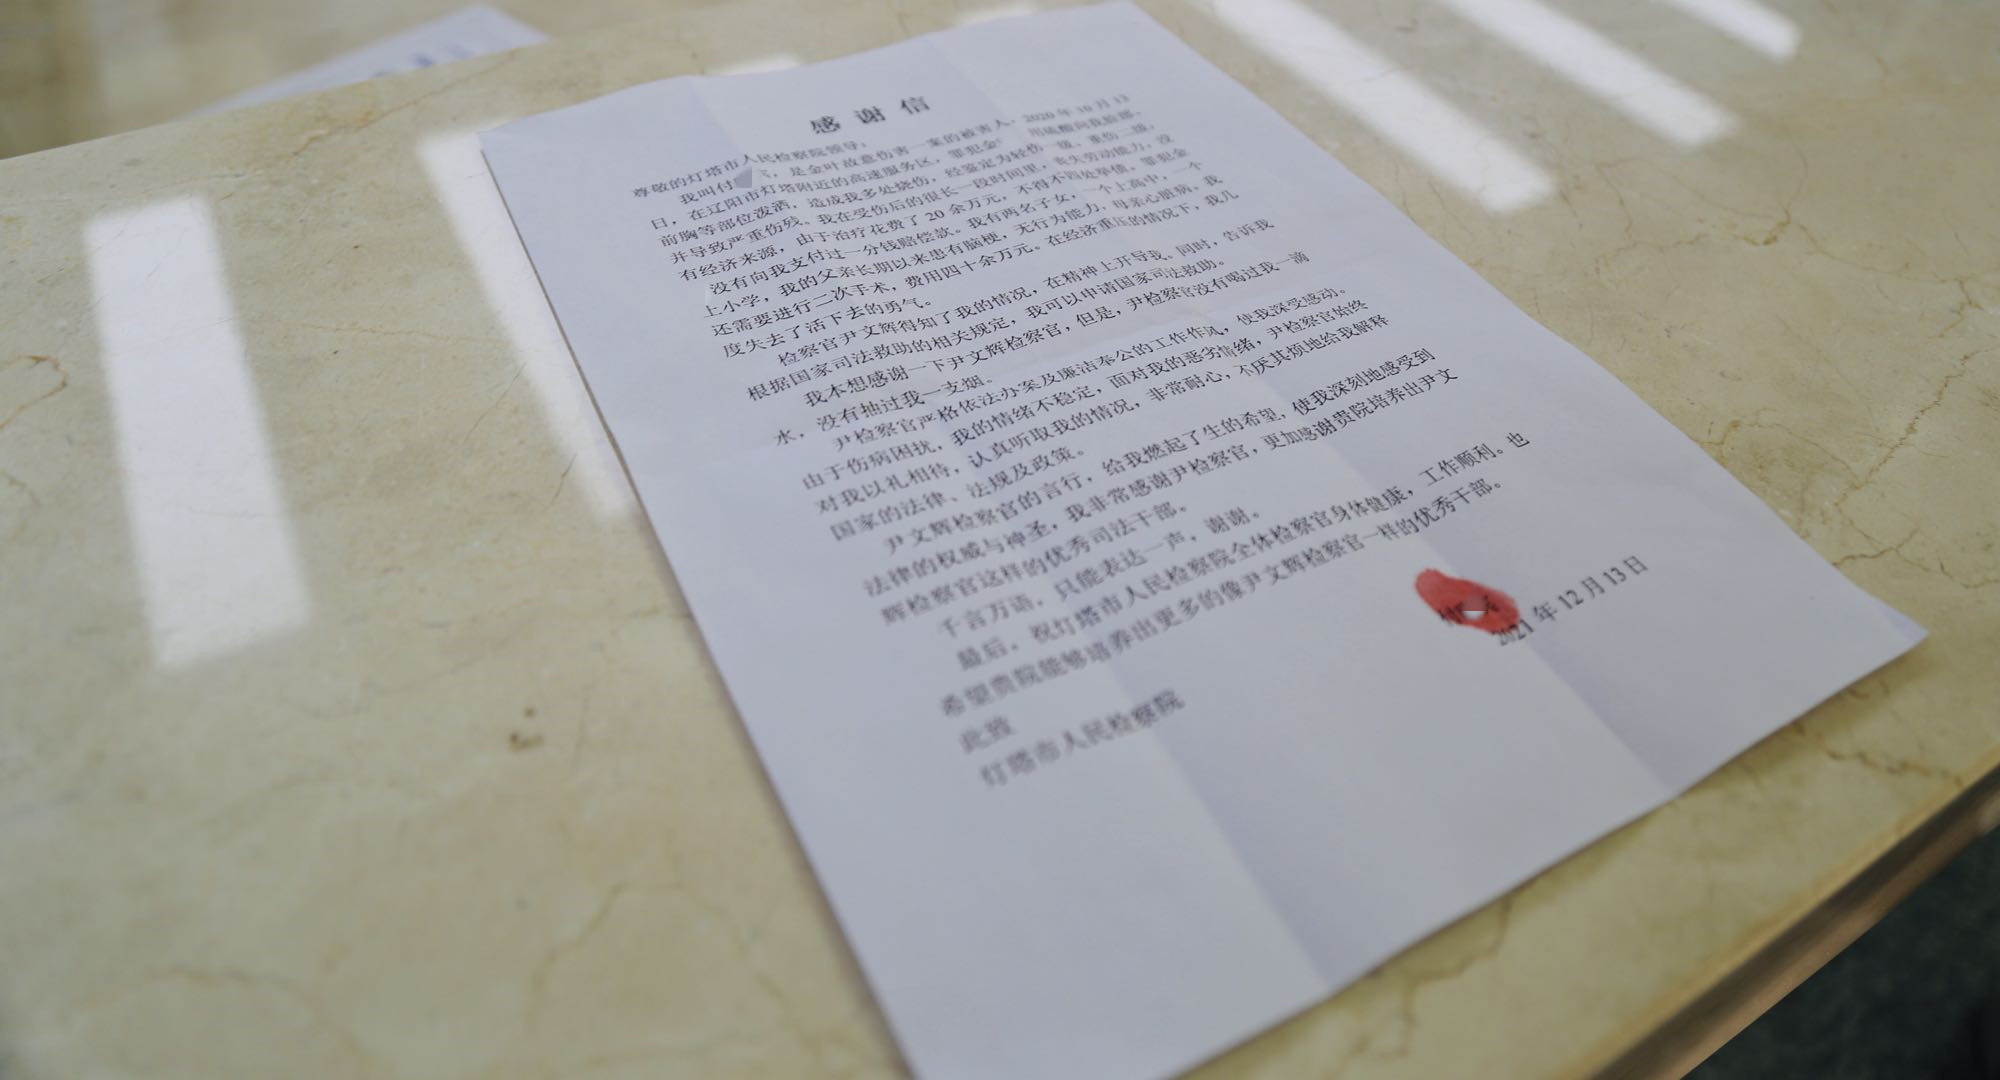 感谢信
尊敬的灯塔市人民检察院领导：
我叫付 ，是金叶故意伤害一案的被害人，2020年10月13
日，在辽阳市灯塔附近的高速服务区，罪犯金 用硫酸向我脸部、
前胸等部位泼洒，造成我多处烧伤，经鉴定为轻伤一级，重伤二级，
并导致严重伤残。我在受伤后的很长一段时间里，丧失劳动能力，没
有经济来源，由于治疗花费了20余万元，不得不四处举借，罪犯金
没有向我支付过一分钱赔偿款。我有两名子女，一个上高中，一个
上小学，我的父亲长期以来患有脑梗，无行为能力，母亲心脏病。我
还需要进行二次手术，费用四十余万元。在经济重压的情况下，我几
度失去了活下去的勇气。
检察官尹文辉得知了我的情况，在精神上开导我。同时，告诉我
根据国家司法救助的相关规定，我可以申请国家司法救助。
我本想感谢一下尹文辉检察官，但是，尹检察官没有喝过我一滴
水，没有抽过我一支烟。
尹检察官严格依法办案及廉洁奉公的工作作风，使我深受感动。
由于伤病困扰，我的情绪不稳定，面对我的恶劣情绪，尹检察官始终
对我以礼相待，认真听取我的情况，非常耐心，不厌其烦地给我解释
国家的法律、法规及政策。
尹文辉检察官的言行，给我燃起了生的希望，使我深刻地感受到
法律的权威与神圣，我非常感谢尹检察官，更加感谢贵院培养出尹文
辉检察官这样的优秀司法干部。
千言万语，只能表达一声，谢谢。
最后，祝灯塔市人民检察院全体检察官身体健康，工作顺利。也
希望贵院能够培养出更多的像尹文辉检察官一样的优秀干部。
此致
灯塔市人民检察院
2021年12月13日